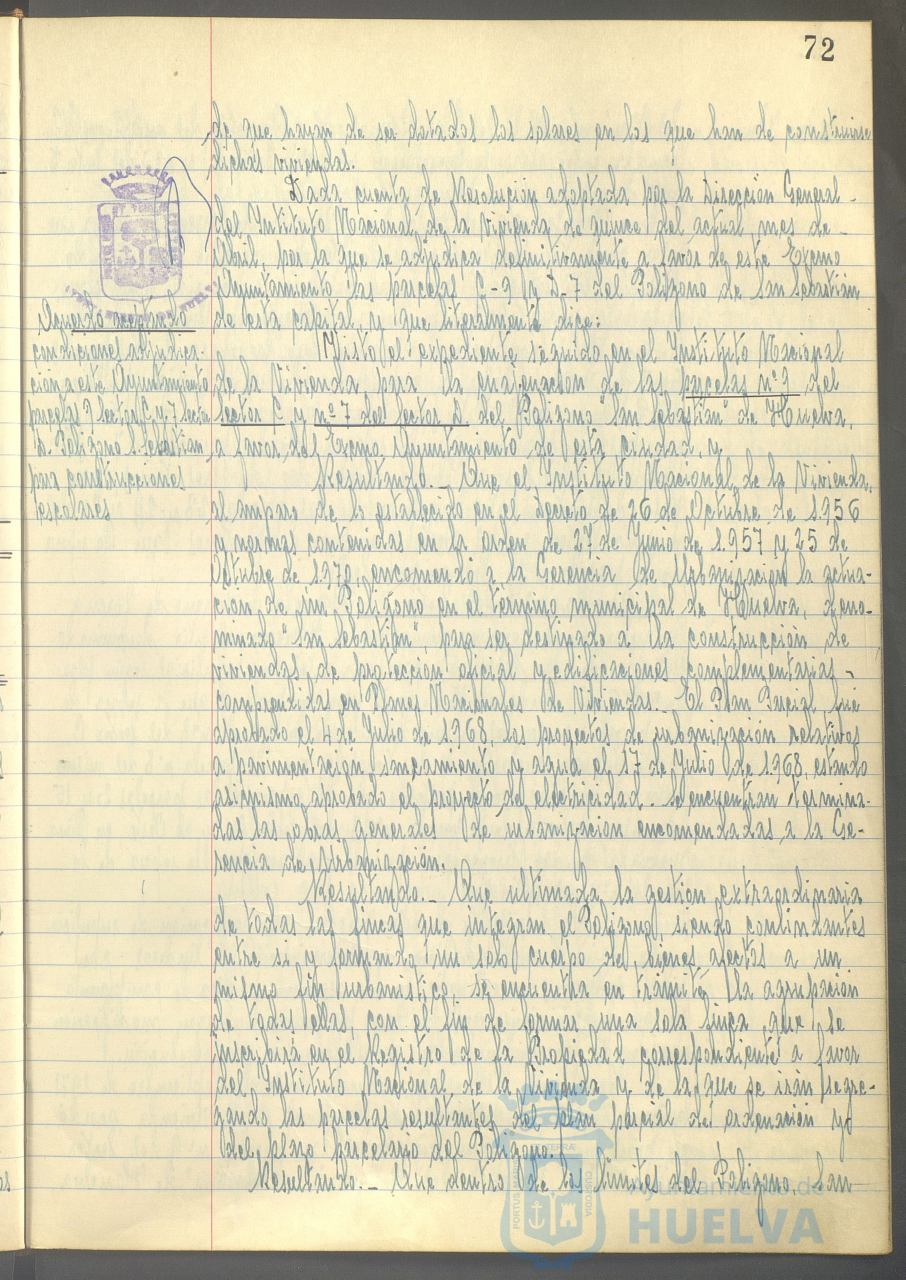 72
de que hayan de ser dotados los solares en los que han de construirse
dichas viviendas.
Dada cuenta de Resolución adoptada por la Dirección General
del Intituto Nacional de la Vivienda de quince del actual mes de
Abril, por la que se adjudica definitivamente a favor de este Excmo
Ayuntamiento las parcelas C-9 y D-7 del Polígono de San Sebastián
de esta capital, y que literalmente dice:
Acuerdo aceptando
condiciones adjudica-
ción a este Ayuntamiento
parcelas 9 sector C y 7 sector
D. Polígono S. Sebastián
para construcciones
escolares
"Visto el expediente seguido en el Instituto Nacional
de la Vivienda para la enajenación de las parcelas nº 9 del
sector C y nº 7 del sector D. del Polígono "San Sebastián" de Huelva,
a favor del Excmo. Ayuntamiento de esta ciudad, y
Resultando.- Que el Instituto Nacional de la Vivienda,
al amparo de lo establecido en el Decreto de 26 de Octubre de 1.956
y normas contenidas en la orden de 27 de Junio de 1.957 y 25 de
Octubre de 1.970, encomendó a la Gerencia de Urbanización la actua-
ción de un Polígono en el término municipal de Huelva, deno-
minado "San Sebastián", para ser destinado a la construcción de
viviendas de protección oficial y edificaciones complementarias
comprendidas en Planes Nacionales de Viviendas.- El Plan Parcial fué
aprobado el 4 de Julio de 1.968, los proyectos de urbanización relativos
a pavimentación, saneamiento y agua el 17 de Julio de 1.968, estando
asimismo aprobado el proyecto de electricidad. Se encuentran termina-
das las obras generales de urbanización encomendadas a la Ge-
rencia de Urbanización.
Resultando.- Que ultimada la gestión extraordinaria
de todas las fincas que integran el Polígono, siendo conlindantes
entre si, y formando un solo cuerpo de bienes afectos a un
mismo fin urbanístico, se encuentra en trámite la agrupación
de todas ellas, con el fin de formar una sola finca, que se
inscribirá en el Registro de la Propiedad correspondiente a favor
del Instituto Nacional de la Vivienda y de la que se irán segre-
gando las parcelas resultantes del plan parcial de ordenación y
del plazo parcelario del Polígono.
Resultando.- Que dentro de los límites del Polígono, San
Ayuntamiento de
HUELVA